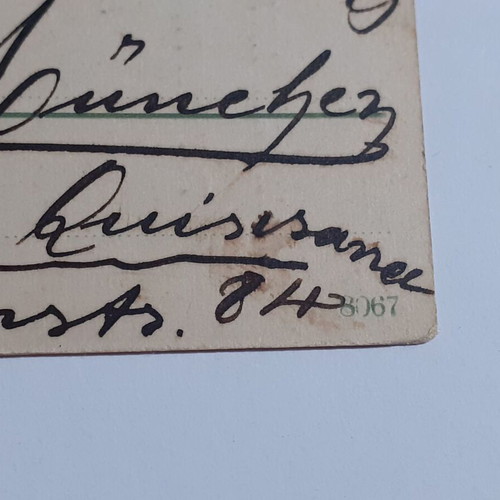 München
Quisisana
str. 84
8067